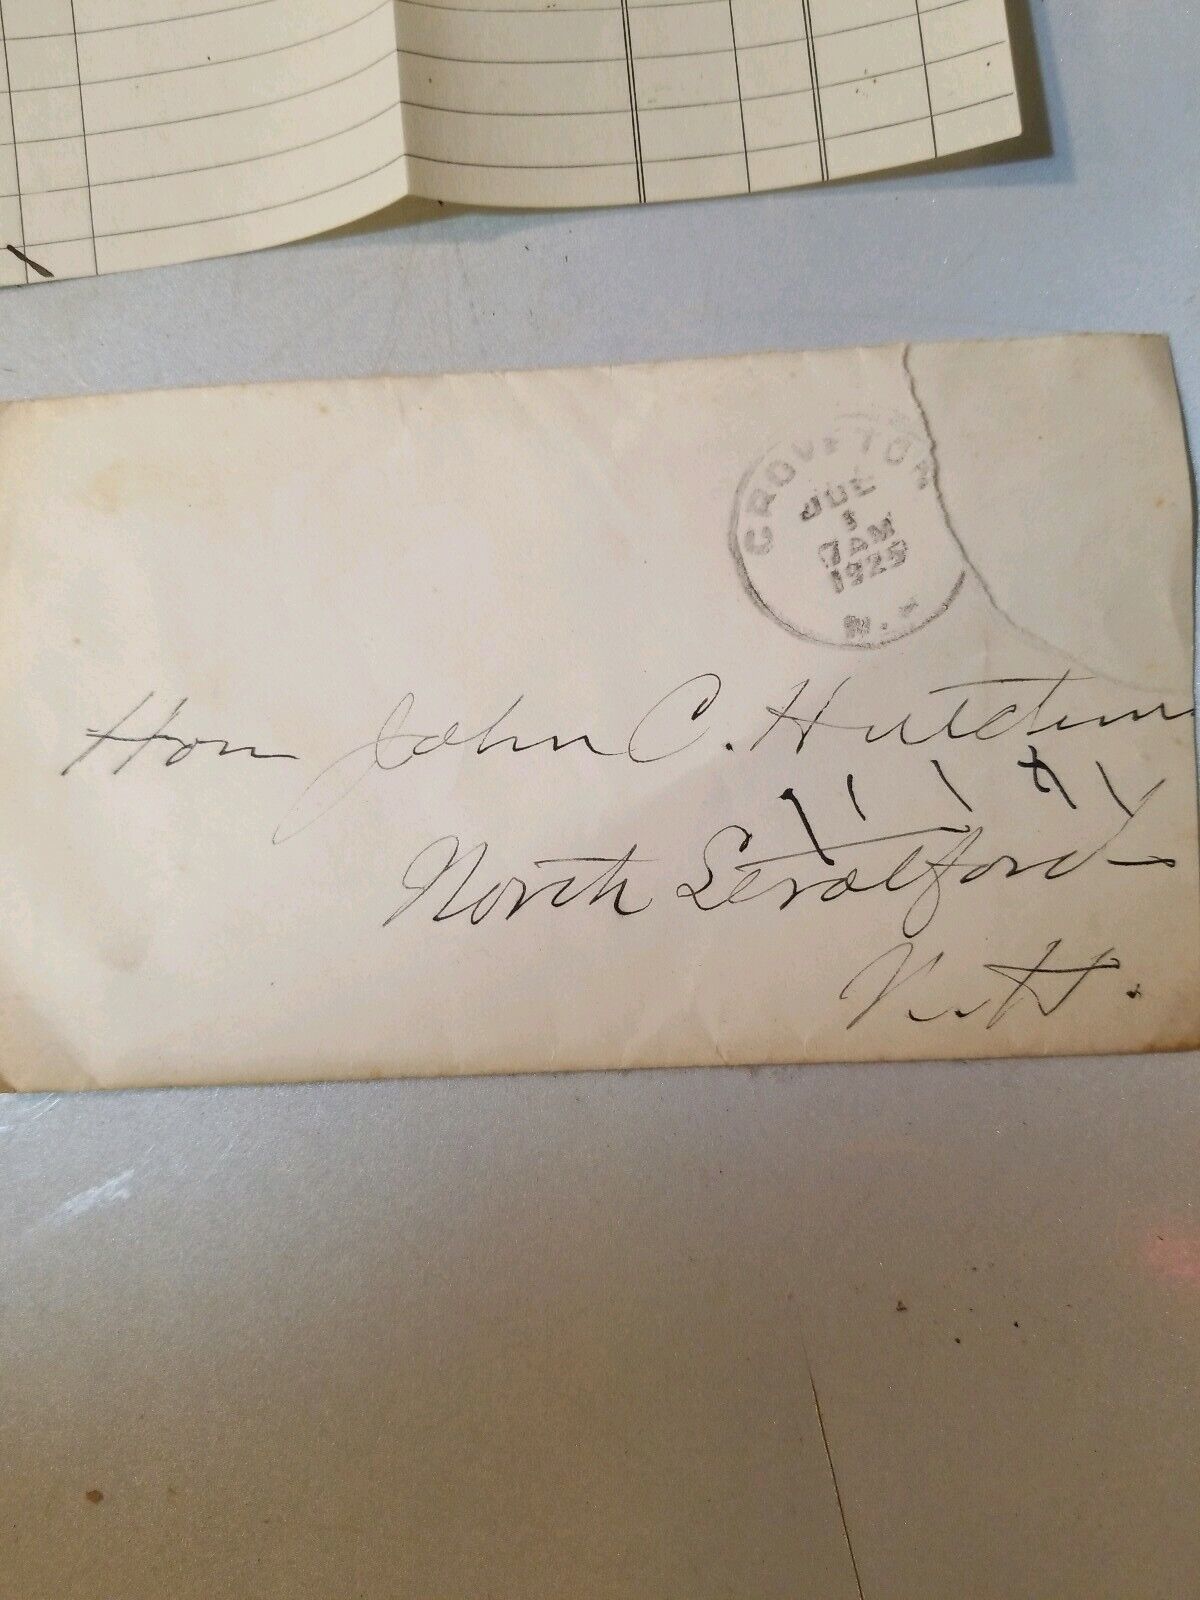 GROVETON
1
7 AM
1925
N.
Hon John C. Hutchins
North Stratford
N.H.